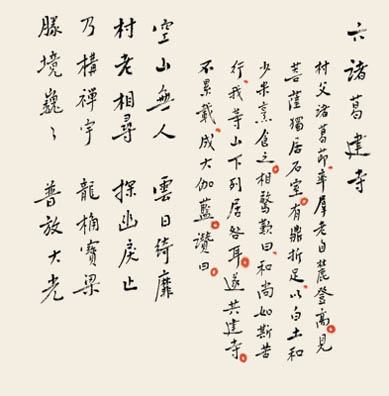 六 諸葛建寺
村父諸葛節、率羣老自麓登高。見
菩薩獨居石室。有鼎折足、以白土和
少米烹食之。相驚歎曰、和尚如斯苦
行、我等山下列居咎耳。遂共建寺。
不累載、成大伽藍。讚曰。
空山無人 雲日綺靡
村老相尋 探幽戾止
乃構禪宇 龍桷寶梁
勝境巍〻 普放大光